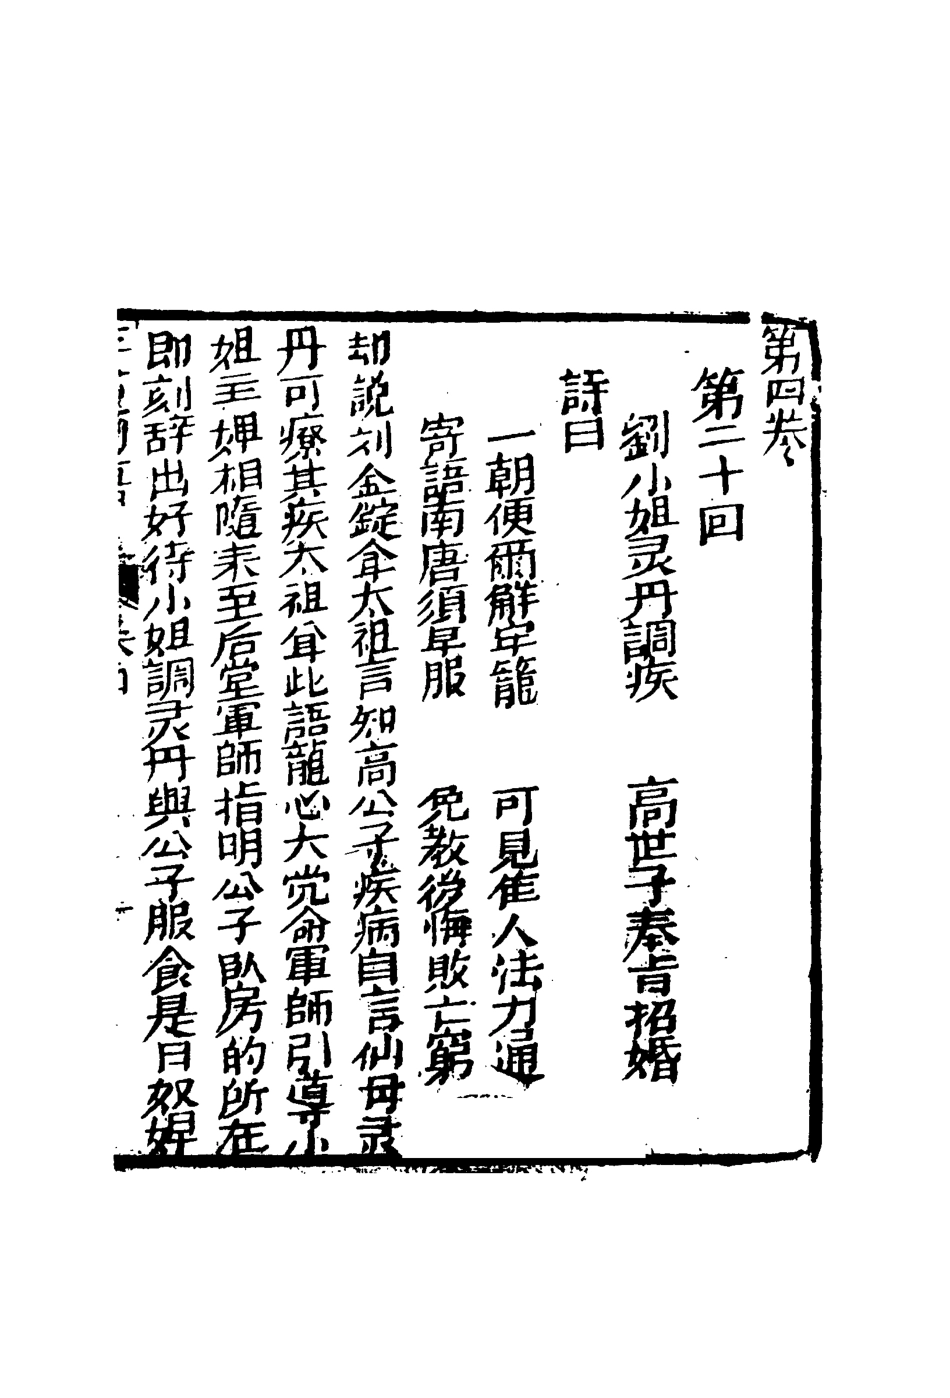 第四卷
第二十回
劉小姐灵丹調疾　高世子奉旨招婚
詩曰
一朝便爾觧牢籠　可見隹人法力通
寄語南唐須早服　免教後悔敗亡窮
却説刘金錠夆太祖言知高公子疾病自言仙母灵
丹可療其疾太祖夆此語龍心大悦命軍師引導小
姐主婢相隨来至后堂軍師指明公子臥房的所在
即刻辞出好待小姐調灵丹與公子服食是日奴婢